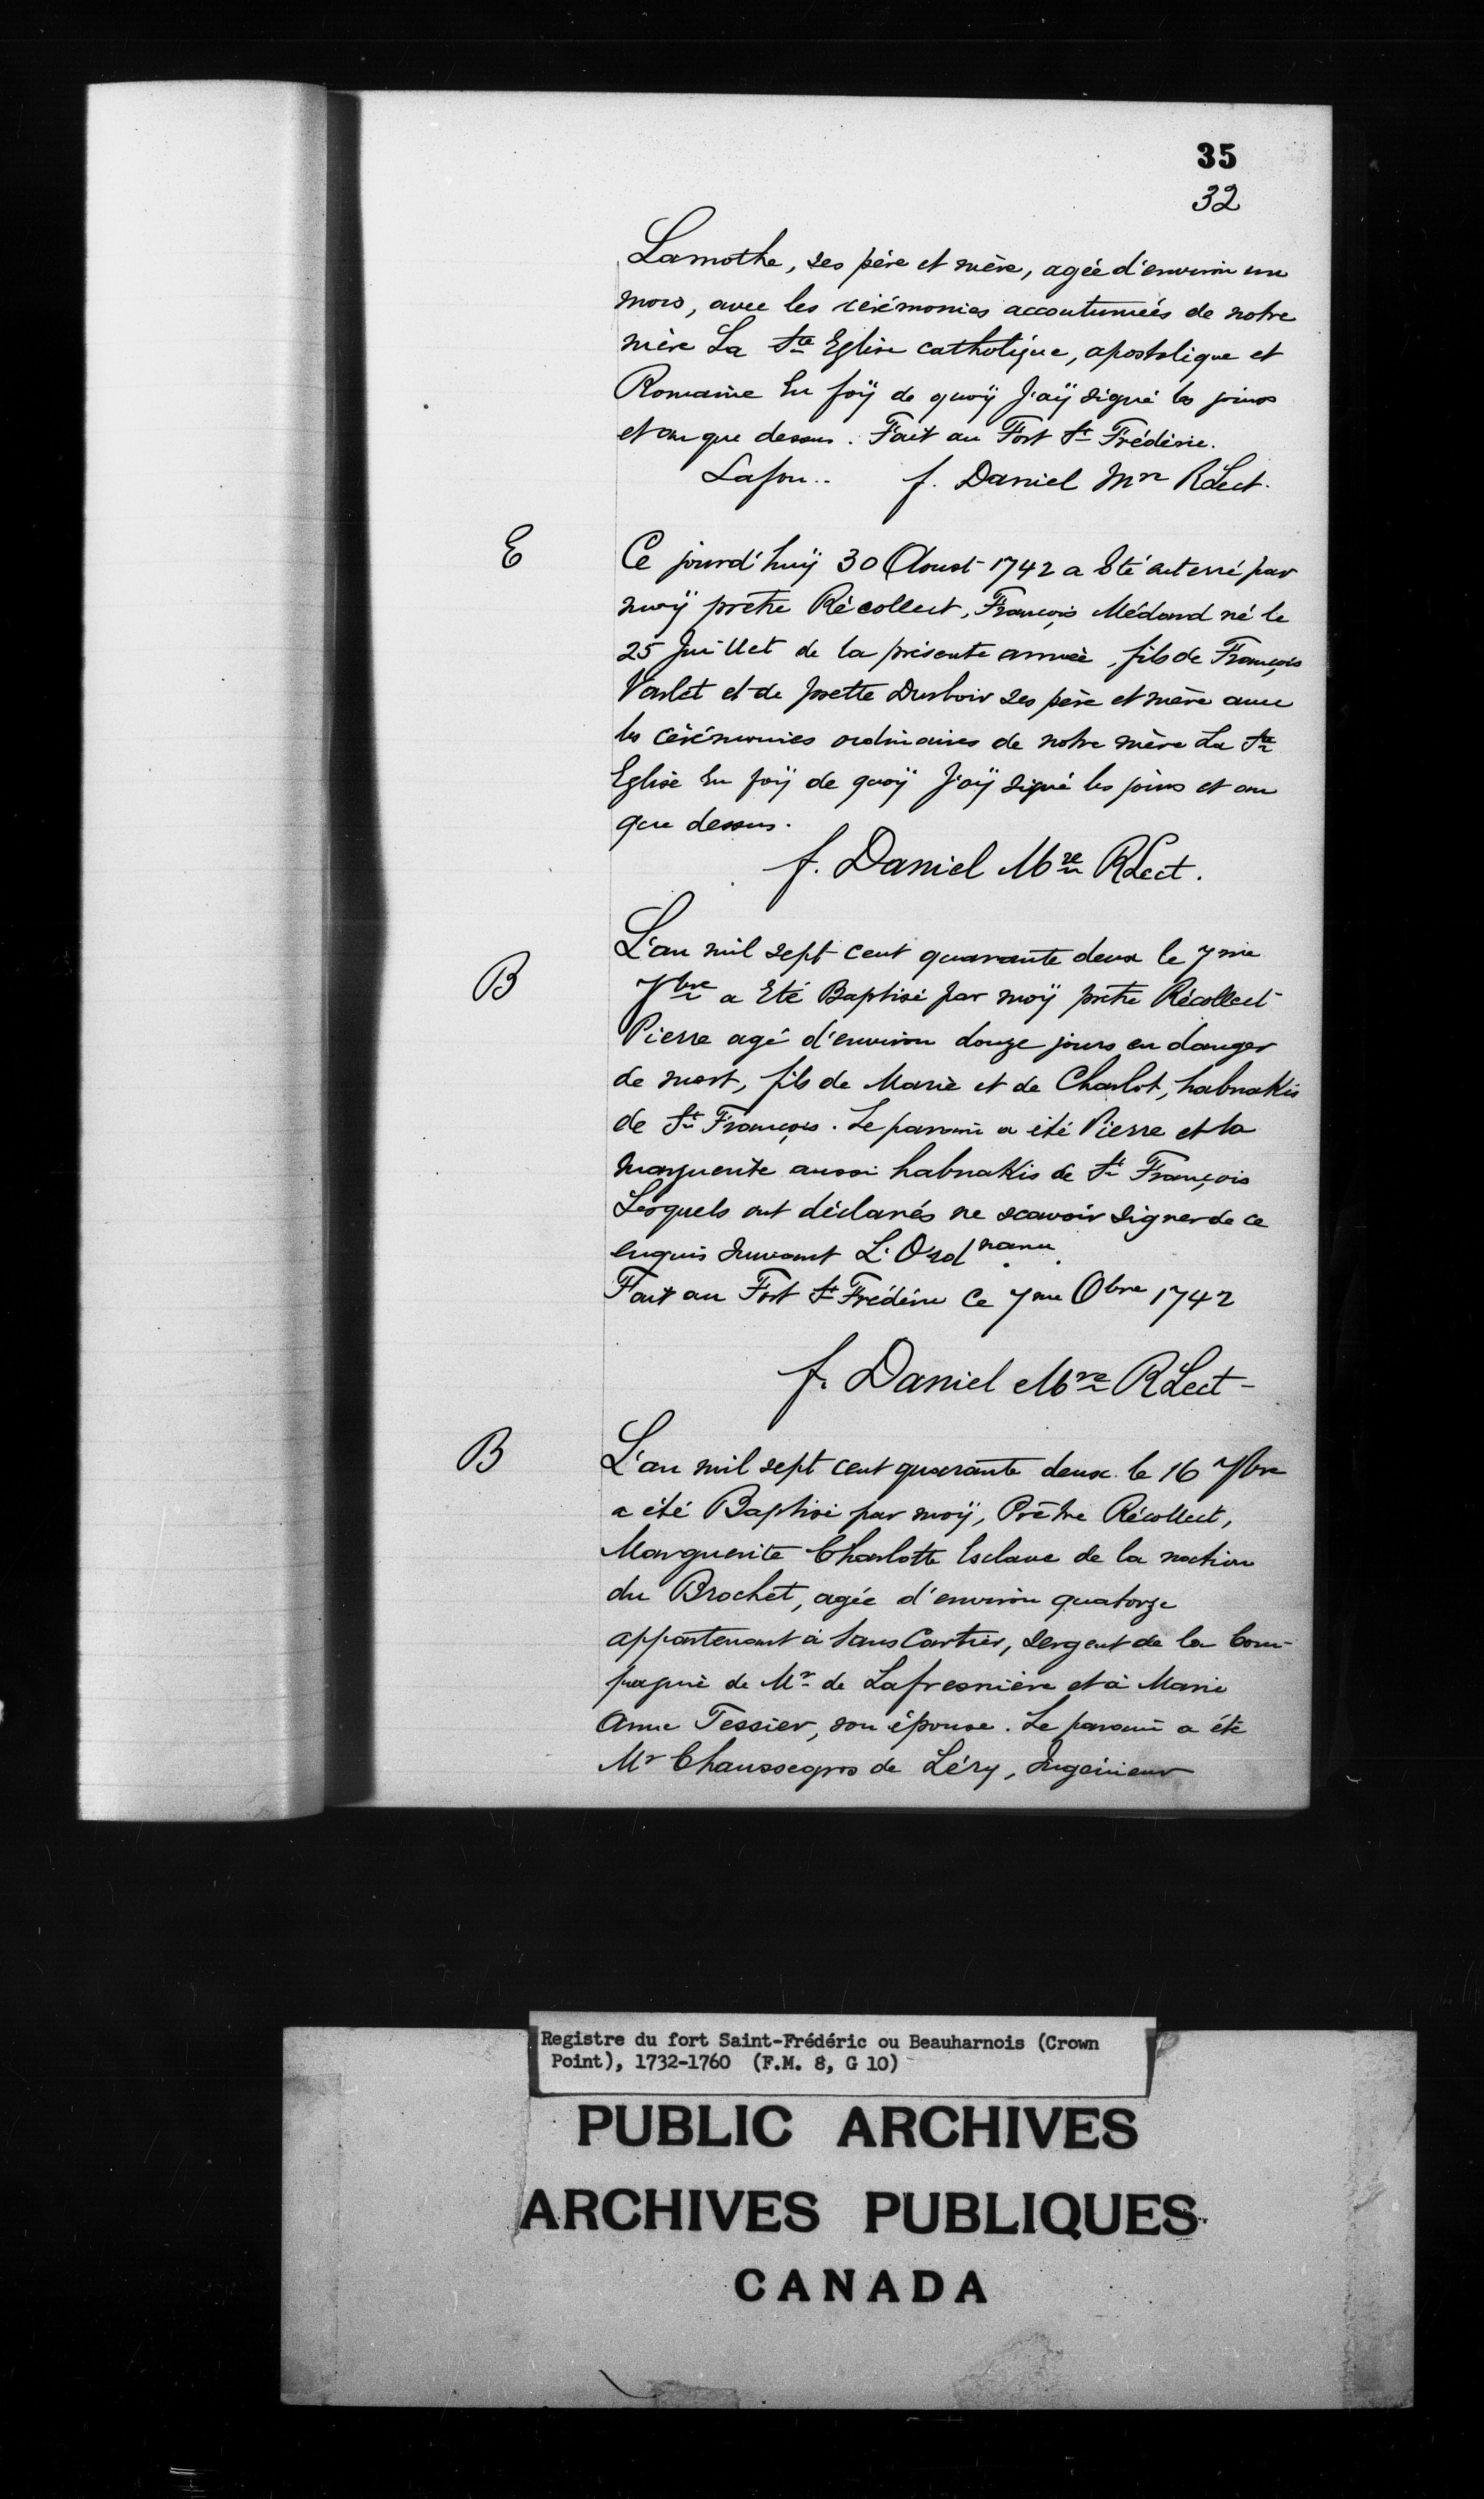 35
32
Lamothe, ses père et mère, agée d'environ un
mois, avec les cérémonies accoutumées de notre
mère La Ste Eglise catholique, apostolique et
Romaine En foÿ de quoÿ J'aÿ signé les jours
et an que dessus. Fait au Fort St Frédéric.
Lafon.. f. Daniel Mre RLect.
E
Ce jourd'huÿ 30 Aoust 1742 a Eté enterré par
moÿ prêtre Récollect, François Médard né le
25 Juillet de la présente année, fils de François
Varlet et de Josette Dubois ses père et mère avec
les cérémonies ordinaires de notre mère La Ste
Eglise En foÿ de quoÿ J'aÿ signé les jours et an
que dessus.
f. Daniel Mre RLect.
B
L'an mil sept cent quarante deux le 7me
7bre a Eté Baptisé par moÿ prêtre Récollect
Pierre agé d'environ douze jours en danger
de mort, fils de Marie et de Charlot, habnakis
de St François. Le parain a été Pierre et la
Marguerite aussi habnakis de St François
Lesquels ont déclarés ne scavoir signer de ce
enquis suivant L'Ordnance.
Fait au Fort St Frédéric Ce 7me Obre 1742
f. Daniel Mre RLect-
B
L'an mil sept cent quarante deux le 16 7bre
a été Baptisé par moÿ, Prêtre Récollect,
Marguerite Charlotte Esclave de la nation
du Brochet, agée d'environ quatorze
appartenant à Sans Cartier, sergent de la Com-
pagnie de Mr de Lafresnière et à Marie
Anne Tessier, son épouse. Le parain a été
Mr Chaussegros de Léry, Ingénieur
Registre du fort Saint-Frédéric ou Beauharnois (Crown
Point), 1732-1760 (F.M. 8, G 10)
PUBLIC ARCHIVES
ARCHIVES PUBLIQUES
CANADA